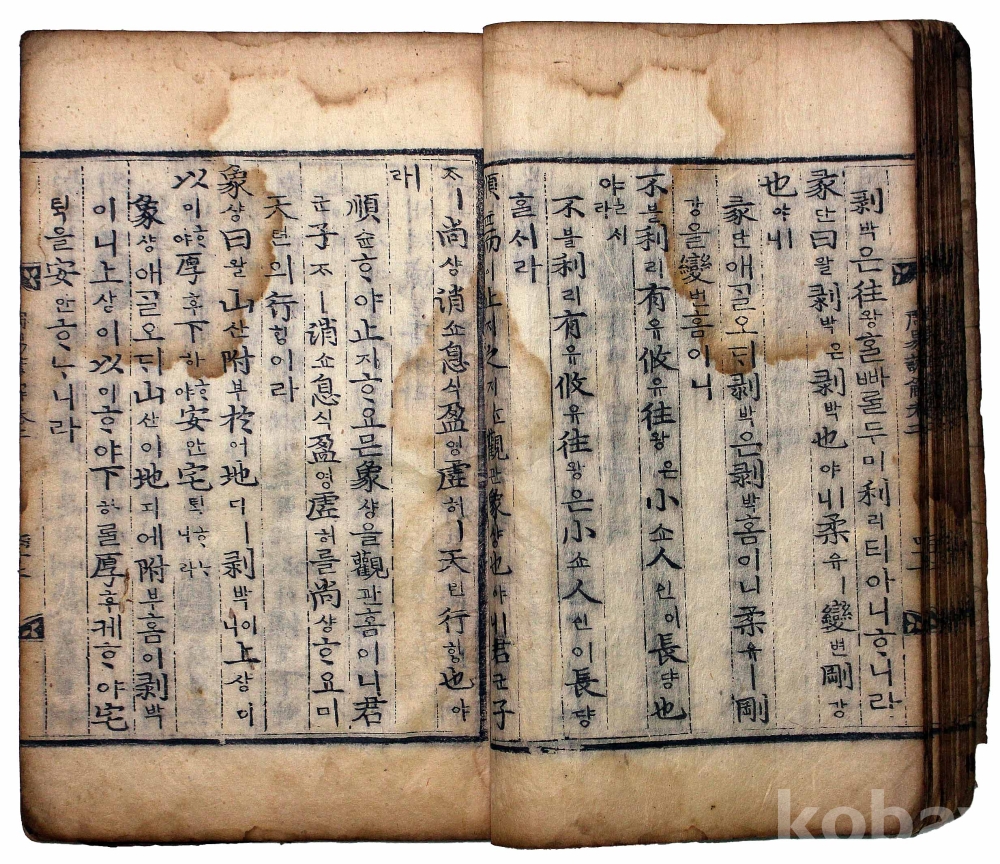 剝박은往왕홀빠ᄅᆞᆯ두미利리티아니ᄒᆞ니라
彖단曰왈剝박은剝박也야ㅣ니柔유ㅣ變변剛강
也야ㅣ니
彖단애ᄀᆞᆯ오ᄃᆡ剝박은剝박홈이니柔유ㅣ剛
강을變변홈이니
不블利리有유攸유往왕은小쇼人인이長댱也
야ㄹᄉᆡ라
不블利리有유攸유往왕은小쇼人인이長댱
홀ᄉᆡ라
順슌而이止지之지ᄂᆞᆫ觀관象샹也야ㅣ니君군子
ᄌᆞㅣ尙샹消쇼息식盈영虛허ㅣ天텬行ᄒᆡᆼ也야
ㅣ라
順슌ᄒᆞ야止지ᄒᆞ요믄象샹을觀관홈이니君
군子ᄌᆞㅣ消쇼息식盈영虛허를尙샹ᄒᆞ요미
天텬의行ᄒᆡᆼ이라
象샹曰왈山산附부於어地디ㅣ剝박이니上샹이
以이ᄒᆞ야厚후下하ᄒᆞ야安안宅ᄐᆡᆨᄒᆞᄂᆞ니라
象샹애ᄀᆞᆯ오ᄃᆡ山산이地디에附부홈이剝박
이니上샹이以이ᄒᆞ야下하ᄅᆞᆯ厚후케ᄒᆞ야宅
ᄐᆡᆨ을安안ᄒᆞᄂᆞ니라